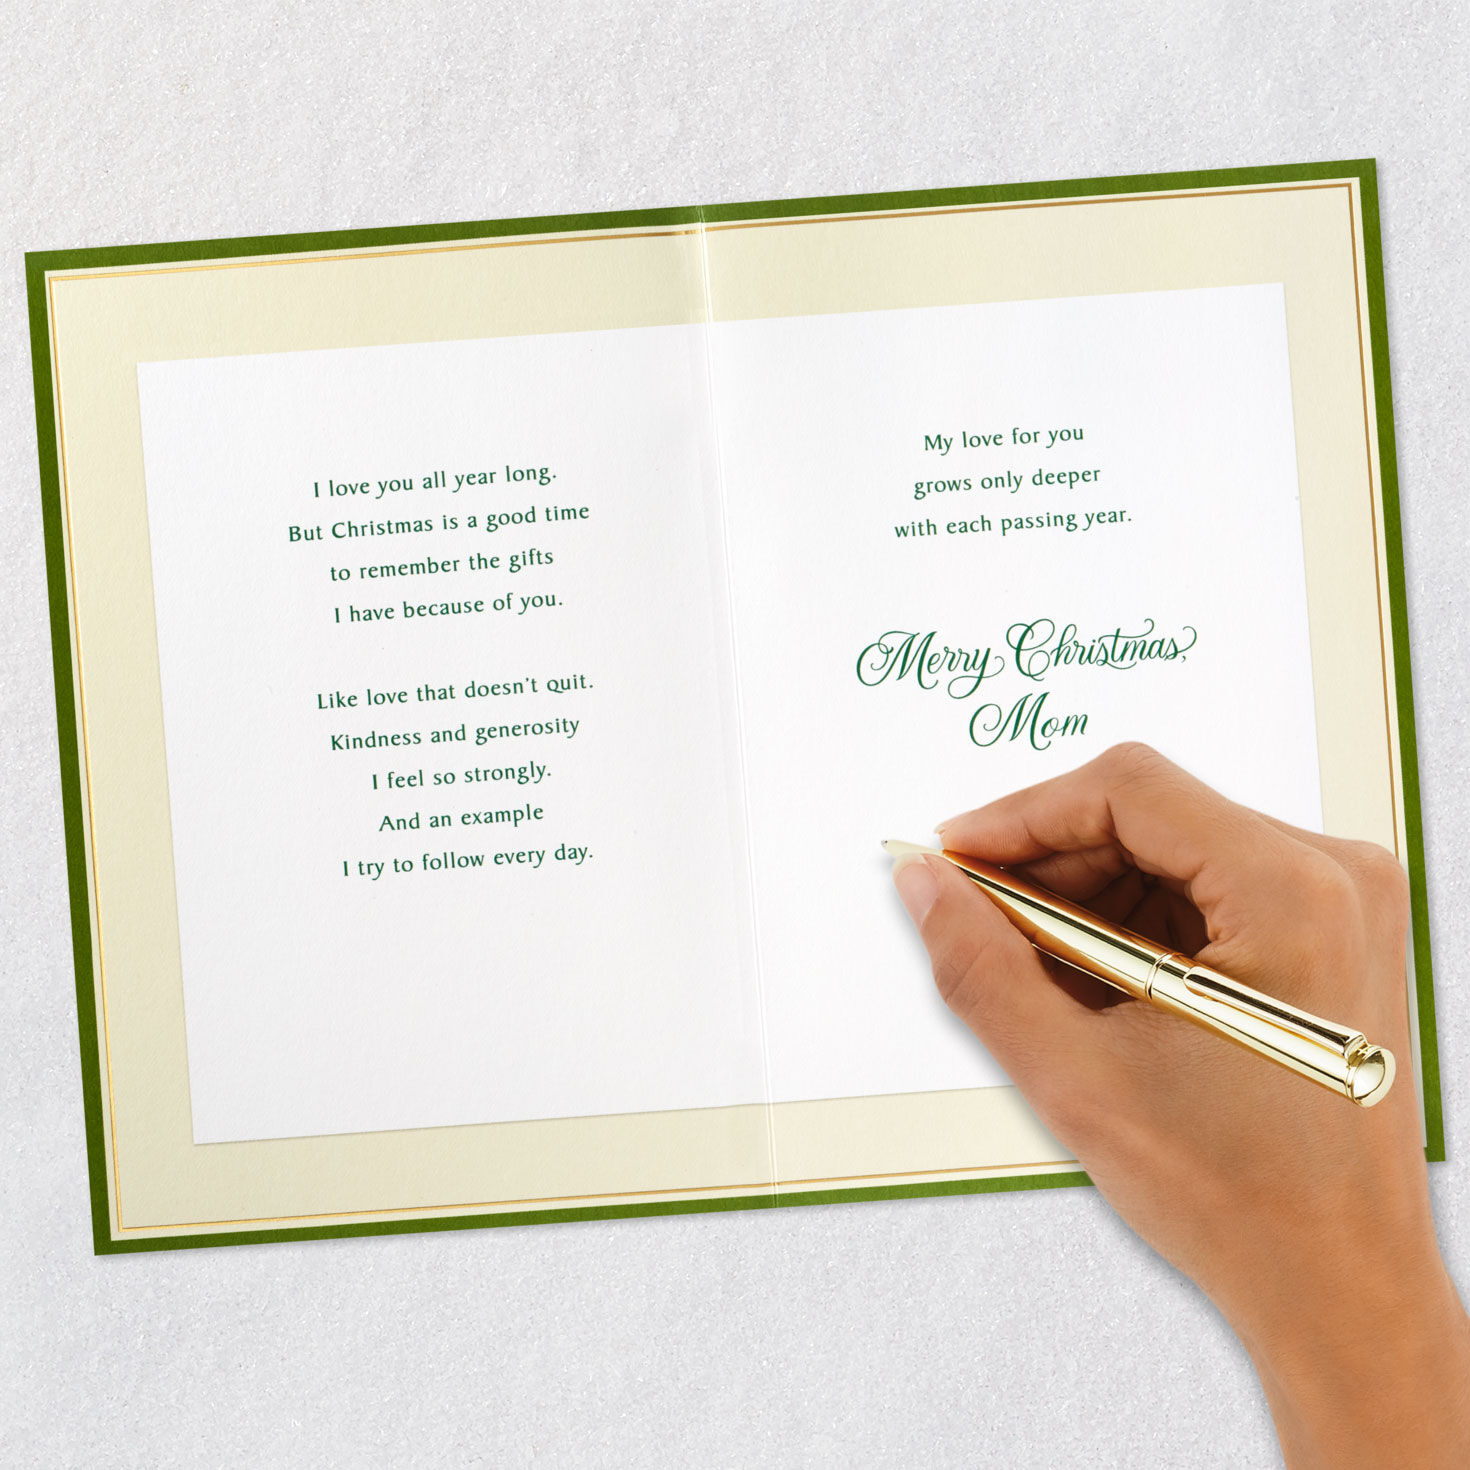 I love you all year long.
But Christmas is a good time
to remember the gifts
I have because of you.
Like love that doesn't quit.
Kindness and generosity
I feel so strongly.
And an example
I try to follow every day.
My love for you
grows only deeper
with each passing year.
Merry Christmas,
Mom